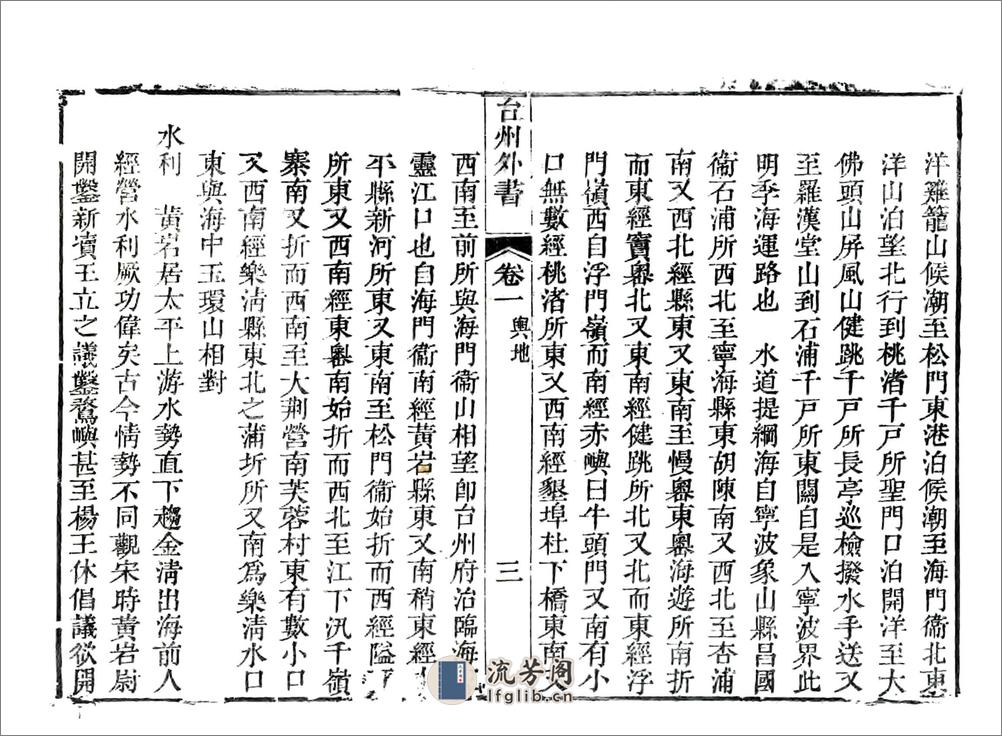 洋雞籠山候潮至松門東港泊候潮至海門衞北東
洋山泊望北行到桃渚千戸所聖門口泊開洋至大
佛頭山屏風山健跳千戸所長亭巡檢撥水手送又
至羅漢堂山到石浦千戸所東關自是入寧波界此
明季海運路也　水道提綱海自寧波象山縣昌國
衞石浦所西北至寧海縣東胡陳南又西北至杏浦
南又西北經縣東又東南至慢嶴東嶴海遊所南折
而東經竇嶴北又東南經健跳所北又北而東經浮
門嶺西自浮門嶺而南經赤嶼曰牛頭門又南有小
口無數經桃渚所東又西南經墾埠杜下橋東南
台州外書　卷一　輿地　三
西南至前所與海門衞山相望卽台州府治臨海
靈江口也自海門衞南經黃岩縣東又南稍東經
平縣新河所東又東南至松門衞始折而西經隘
所東又西南經東嶴南始折而西北至江下汛千嶺
寨南又折而西南至大荆營南芙蓉村東有數小口
又西南經樂淸縣東北之蒲圻所又南爲樂淸水口
東與海中玉環山相對
水利　黃岩居太平上游水勢直下趨金淸出海前人
經營水利厥功偉矣古今情勢不同觀宋時黃岩尉
開鑿新瀆王立之議鑿鶩嶼甚至楊王休倡議欲開
流芳閣
lfglib.cn